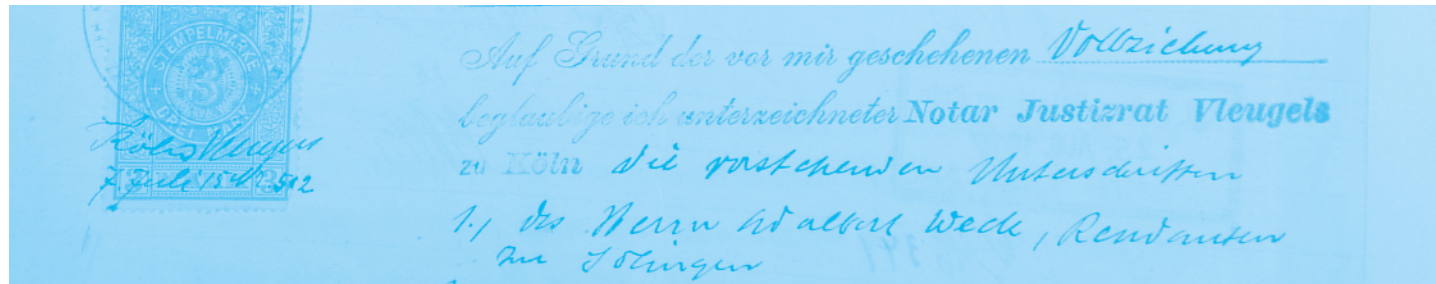 STEMPELMARKE
3
DREI MARK
Köln Vleugels
7 Juli 15 № 512
Auf Grund der vor mir geschehenen Vollziehung
beglaubige ich unterzeichneter Notar Justizrat Vleugels
zu Köln die vorstehenden Unterschriften
1., des Herrn Adalbert Weck, Rendanten
zu Solingen